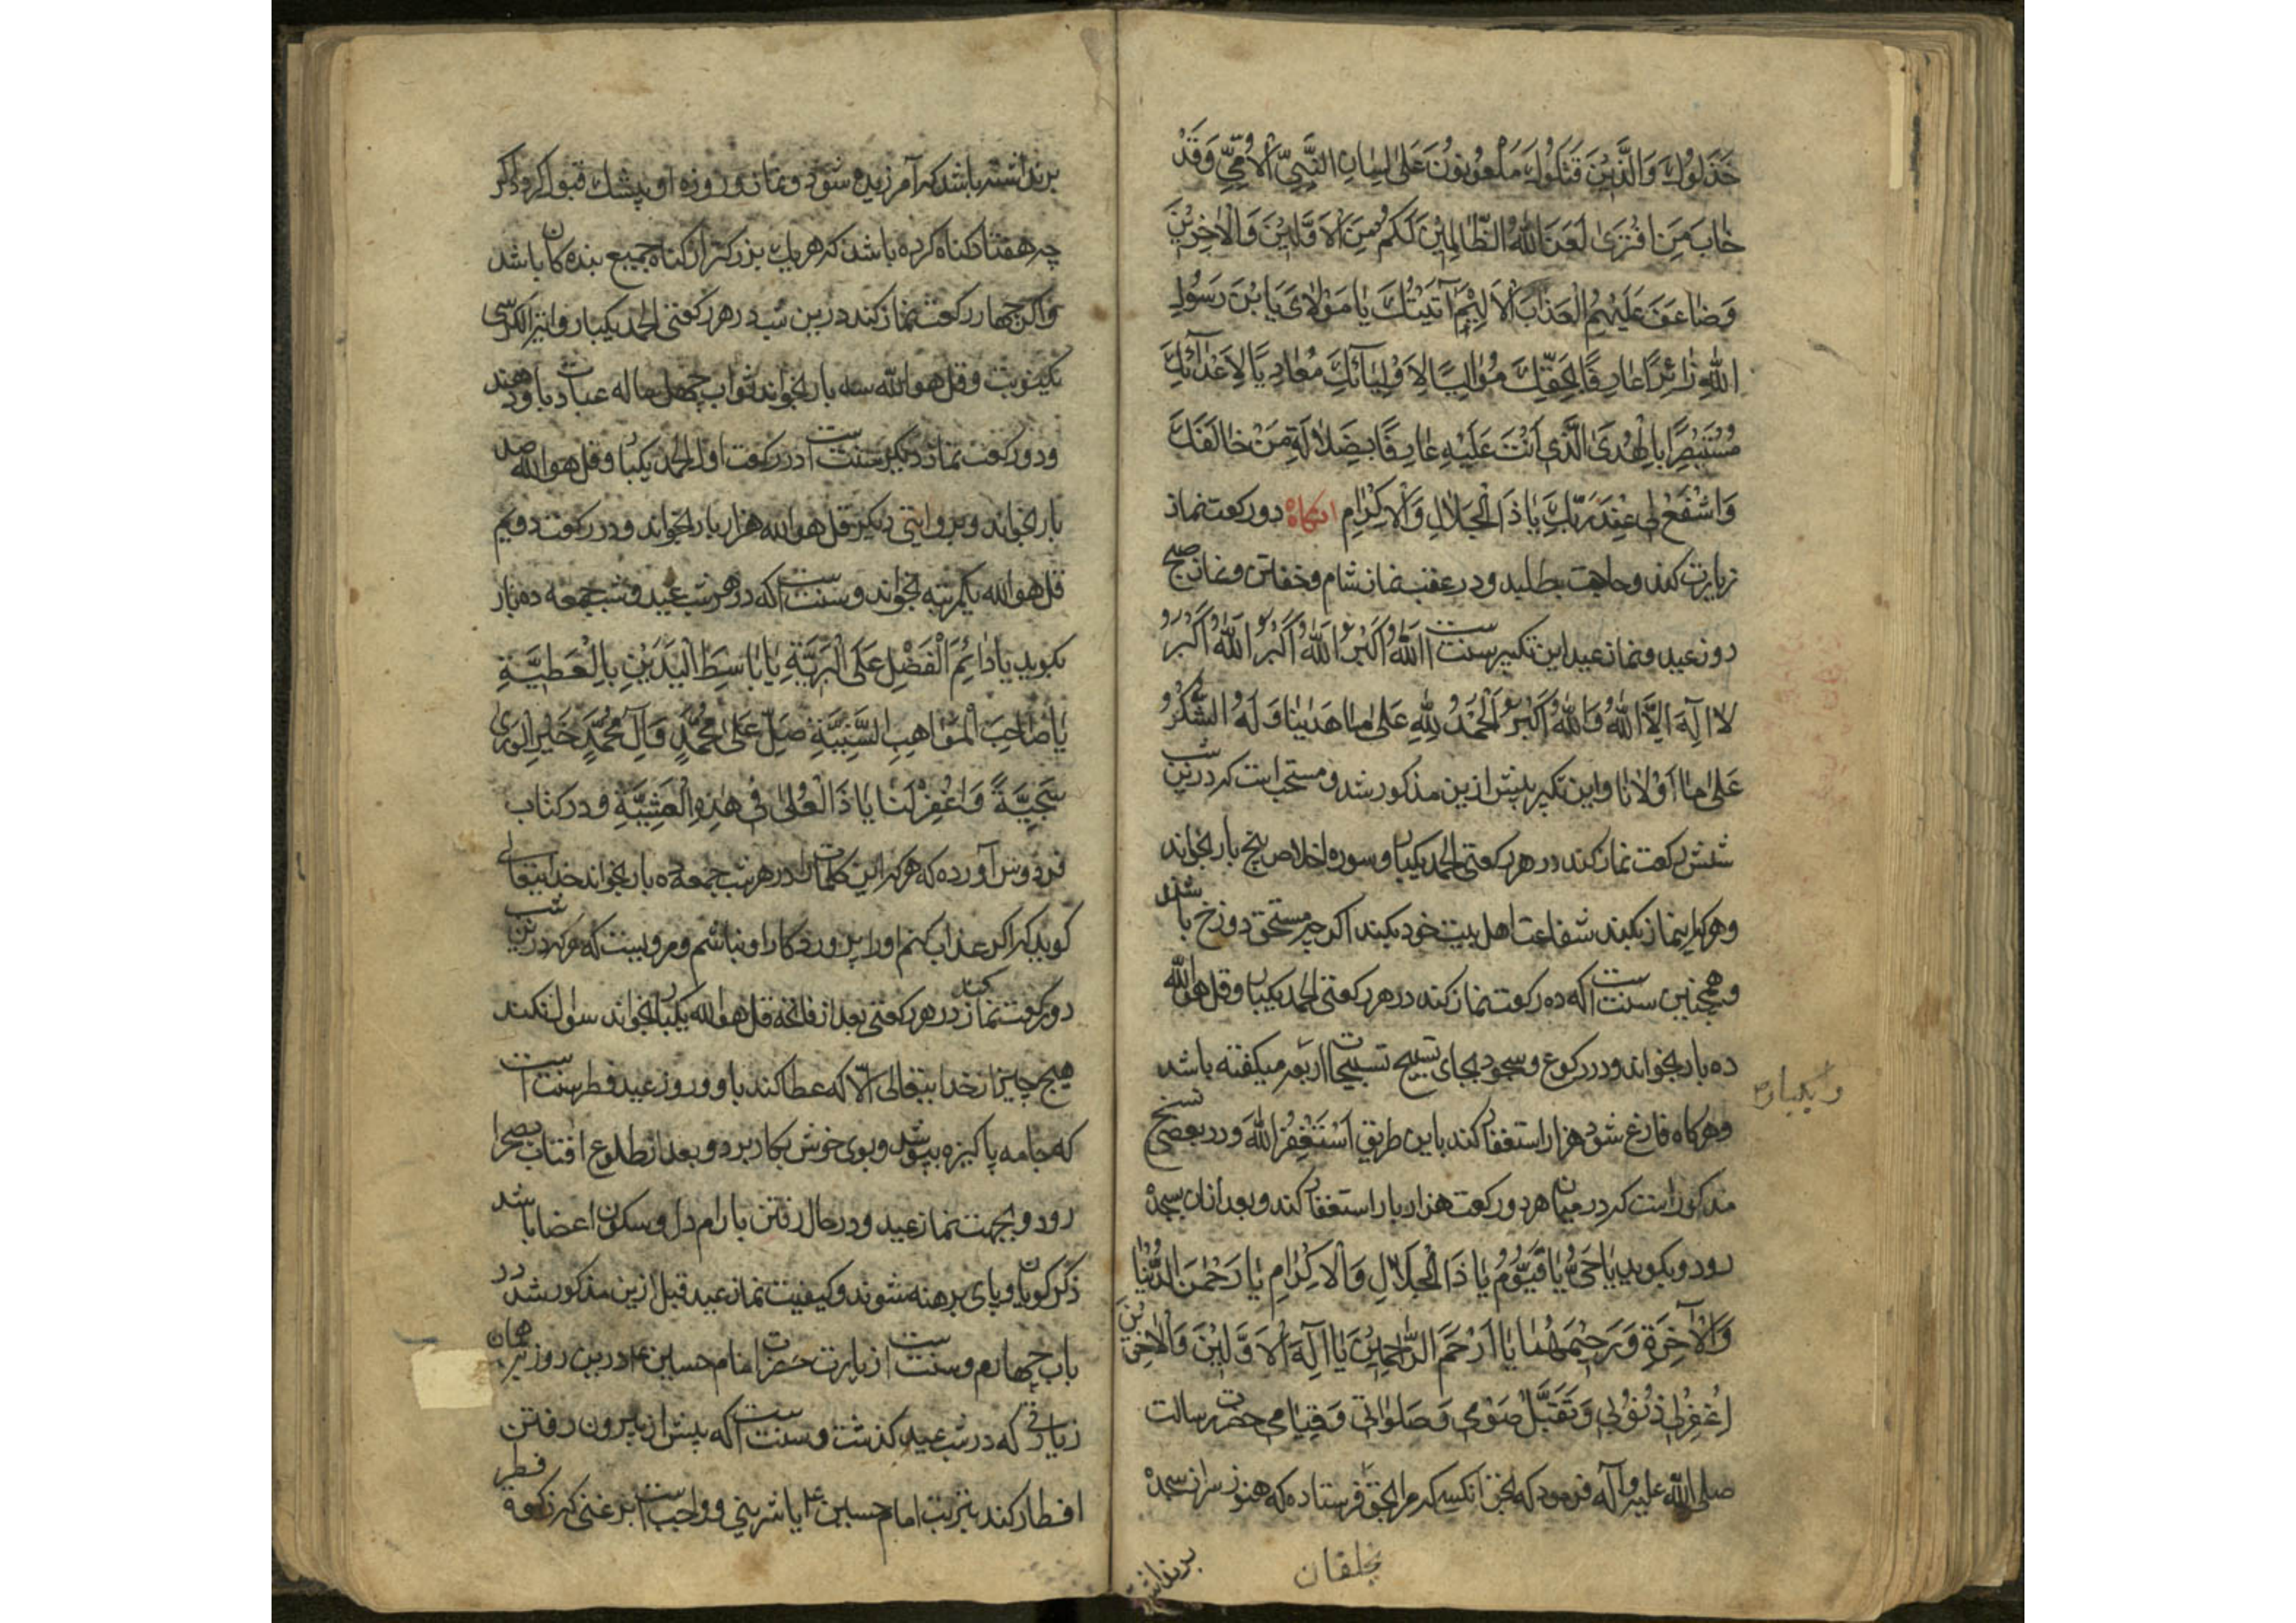 خَذَلُوكَ وَالَّذِينَ قَتَلُوكَ مَلْعُونُونَ عَلىٰ لِسَانِ النَّبِيِّ الاُمِّيِّ وَقَدْ
خٰابَ مَنِ افْتَرىٰ لَعَنَ اللّٰهُ الظّٰالِمِينَ لَكُمْ مِنَ الاَوَّلِينَ وَالْاٰخِرِينَ
وَضٰاعَفَ عَلَيْهِمُ الْعَذٰابَ الاَلِيمَ اَتَيْتُكَ يٰا مَوْلٰايَ يَا بْنَ رَسُولِ
اللّٰهِ زٰائِرًا عٰارِفًا بِحَقِّكَ مُوٰالِيًا لِاَوْلِيٰائِكَ مُعٰادِيًا لِاَعْدٰائِكَ
مُسْتَبْصِرًا بِالْهُدَى الَّذِي اَنْتَ عَلَيْهِ عٰارِفًا بِضَلٰالَةِ مَنْ خٰالَفَكَ
وَاشْفَعْ لِي عِنْدَ رَبِّكَ يٰا ذَا الْجَلٰالِ وَالْاِكْرٰامِ انكاه دو ركعت نماز
زيارت كند و حاجت بطلبد و در عقب نماز شام و خفتن و نماز صبح
روز عيد و نماز عيد اين تكبير سنت است اَللّٰهُ اَكْبَرُ اَللّٰهُ اَكْبَرُ اَللّٰهُ اَكْبَرُ
لاٰ اِلٰهَ اِلاَّ اللّٰهُ وَاللّٰهُ اَكْبَرُ اَلْحَمْدُ لِلّٰهِ عَلىٰ مٰا هَدٰينٰا وَلَهُ الشُّكْرُ
عَلىٰ مٰا اَوْلاٰنٰا و اين تكبير پيش ازين مذكور شد و مستحب است كه درين شب
شش ركعت نماز كند در هر ركعتى الحمد يكبار و سوره اخلاص پنج بار بخواند
و هر كه اين نماز بكند شفاعت اهل بيت خود بكند اكر چه مستحق دوزخ باشند
و همچنين سنت است كه ده ركعت نماز كند در هر ركعتى الحمد يكبار و قل هو الله
ده بار بخواند و در ركوع و سجود بجاى تسبيح تسبيحات اربعه ميكفته باشد
و هركاه فارغ شود هزار استغفار كند باين طريق اَسْتَغْفِرُ اللّٰهَ و در بعضى نسخ
مذكور است كه در ميان هر دو ركعت هزار بار استغفار كند و بعد ازان بسجده
رود و بكويد يٰا حَيُّ يٰا قَيُّومُ يٰا ذَا الْجَلاٰلِ وَالْاِكْرٰامِ يٰا رَحْمٰنَ الدُّنْيٰا
وَالْآخِرَةِ وَرَحِيمَهُمٰا يٰا اَرْحَمَ الرّٰاحِمِينَ يٰا اِلٰهَ الْاَوَّلِينَ وَالْاٰخِرِينَ
اِغْفِرْ لِي ذُنُوبِي وَتَقَبَّلْ صَوْمِي وَصَلَوٰاتِي وَقِيٰامِي حضرت رسالت
صلى اللّٰه عليه و آله فرمود كه بحق انكسى كه مرا بحق فرستاده كه هنوز سر از سجده
بخلقان
برنداشته
برنداشته باشد كه آمرزيده شود و نماز و روزه او پيشك قبول كردد اكر
چه هفتاد كناه كرده باشد كه هر يك بزركتر از كناه جميع بندكان باشد
و اكر چهار ركعت نماز كند درين شب در هر ركعتى الحمد يكبار و اية الكرسى
يكنوبت و قل هو الله سه بار بخواند ثواب چهل ساله عبادت باو دهند
و دو ركعت نماز ديكر سنت است در ركعت اول الحمد يكبار و قل هو الله صد
بار بخواند و بروايتى ديكر قل هو الله هزار بار بخواند و در ركعت دويم
قل هو الله يكمرتبه بخواند و سنت است كه در هر شب عيد و شب جمعه ده بار
بكويد يٰا دٰائِمَ الْفَضْلِ عَلَى الْبَرِيَّةِ يٰا بٰاسِطَ الْيَدَيْنِ بِالْعَطِيَّةِ
يٰا صٰاحِبَ الْمَوٰاهِبِ السَّنِيَّةِ صَلِّ عَلىٰ مُحَمَّدٍ وَآلِ مُحَمَّدٍ خَيْرِ الْوَرىٰ
سَجِيَّةً وَاغْفِرْ لَنٰا يٰا ذَا الْعُلىٰ فِي هٰذِهِ الْعَشِيَّةِ و در كتاب
فردوس آورده كه هر كه اين كلمات را در هر شب جمعه ده بار بخواند خدايتعالى
كويد كه اكر عذاب كنم او را پروردكار او نباشم و مرويست كه هر كه درين شب
دو ركعت نماز كند در هر ركعتى بعد از فاتحه قل هو الله يكبار بخواند سوال نكند
هيچ چيز از خدايتعالى الّا كه عطا كند باو و روز عيد فطر سنت است
كه جامه پاكيزه بپوشد و بوى خوش بكار برد و بعد از طلوع افتاب بصحرا
رود بجهت نماز عيد و در حال رفتن بارام دل و سكون اعضا باشد
ذكر كويان و پاى برهنه مشوند و كيفيت نماز عيد قبل ازين مذكور شد در
باب چهارم و سنت است زيارت حضرت امام حسين ع درين روز بهمان
زيارتى كه در شب عيد كذشت و سنت است كه پيش از بيرون رفتن
افطار كند بتربت امام حسين ع يا شرينى و واجب است بر غنى كه زكوة فطر